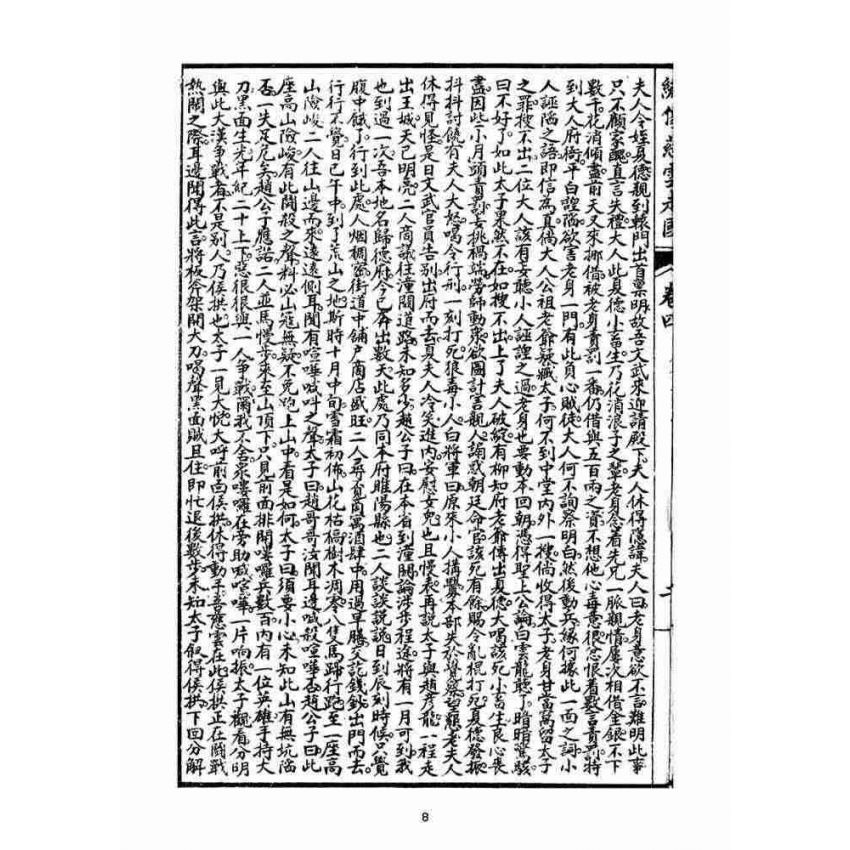 夫人令姪夏德親到轅門出首稟明故吾文武來迎請殿下夫人休得隱諱夫人曰老身意欲不言難明此事
只不顧家醜直言失禮大人此夏德小畜生乃花消浪子之輩老身念着先兄一脈親情屢次相借金銀不下
數千花消傾盡前天又來挪借被老身責罰一番仍借與五百兩之資不想他心毒意狠忿恨着數言責罰將
到大人府衙平白誣陷欲害老身一門有此負心賊徒大人何不詢察明白然後動兵緣何據此一面之詞小
人誣陷之語即信為真倘大人公祖老爺疑藏太子何不到中堂內外一搜倘收得太子老身甘當窩留太子
之罪搜不出二位大人該有妄聽小人誣謹之過老身也要動本回朝憑得聖上公論白雲龍聽了暗暗驚駭
曰不好了如此太子果然不在如搜不出上了夫人破綻有柳知府老爺傳出夏德大喝該死小畜生良心喪
盡因些小月頭責罰妄挑禍端勞師動眾欲圖計害親人誦惑朝廷命官該死有餘賜令亂棍打死夏德發振
抖抖討饒有夫人大怒喝令行刑一刻打死狠毒小人白將軍曰原來小人搆釁本部失於覺察望懇老夫人
休得見怪是日文武官員告別出府而去夏夫人冷笑進內安慰女兒也且慢表再說太子與趙彥龍一程走
出王城天已明亮二人商議往潼關道路未知多少趙公子曰在本省到潼關論涉步程途將有一月可到我
也到過一次吾本地名歸德府今已奔出數天此處乃同本府睢陽縣也二人談談說說日到辰刻時候只覺
腹中餓了行到此處人烟稠密街道中舖戶商店盛旺二人尋覓酒肆中用過早膳交訖錢鈔出門而去
行行不覺日已午中到了荒山之地斯時十月中旬雪霜初佈山花枯槁樹木凋零八隻馬蹄行跑至一座高
山險峻二人往山邊而來遠遠側耳聞有喧嘩喊叫之聲太子曰趙哥哥汝聞耳邊喊殺喧嘩否趙公子曰此
座高山險峻有此鬪殺之聲料必山寇無疑不免跑上山中看是如何太子曰須要小心未知此山有無坑陷
否一失足危矣趙公子應諾二人並馬慢步來至山頂下只見前面排開嘍囉兵數百內有一位英雄手持大
刀黑面生光年紀二十上下惡狠狠與一人爭戰兩我不舍眾嘍囉在旁助喊喧嘩一片响振太子觀看分明
與此大漢爭戰者不是別人乃侯拱也太子一見大悅大呼前面侯拱休得動手吾慈雲在此侯拱正在鬪戰
熱鬧之際耳邊聞得此言將板斧架開大刀喝聲黑面賊且住即忙退後數步未知太子叙得侯拱下回分解
卷四
8